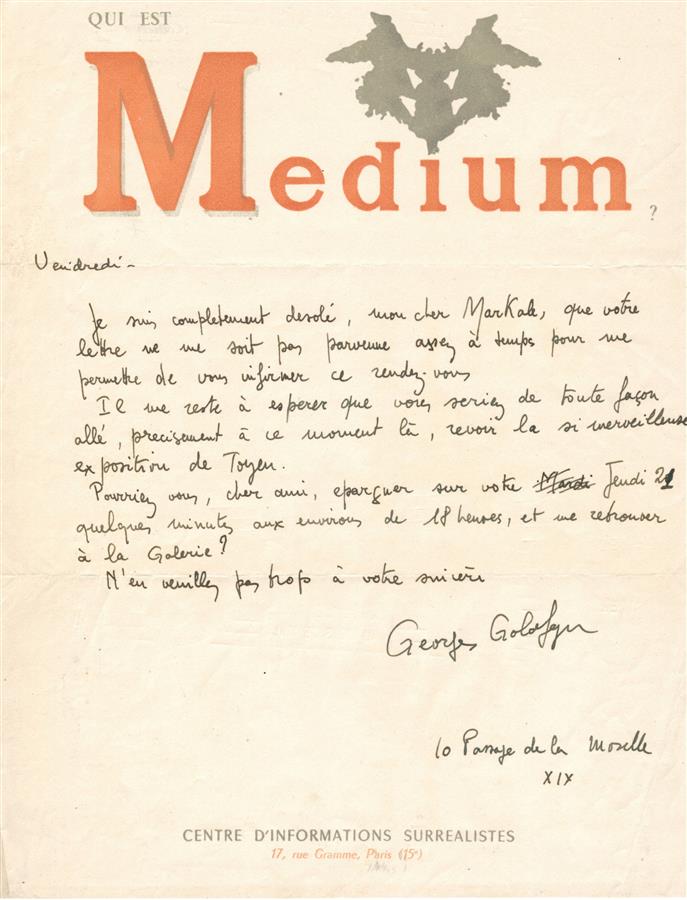 QUI EST
Medium ?
Vendredi -
Je suis completement desolé, mon cher Markale, que votre
lettre ne me soit pas parvenue assez à temps pour me
permettre de vous infirmer ce rendez-vous
Il me reste à esperer que vous seriez de toute façon
allé, precisement à ce moment là, revoir la si merveilleuse
exposition de Toyen.
Pourriez vous, cher ami, epargner sur votre Mardi Jeudi 21
quelques minutes aux environs de 18 heures, et me retrouver
à la Galerie?
N'en veuillez pas trop à votre sincère
Georges Goldfayn
10 Passage de la Moselle
XIX
CENTRE D'INFORMATIONS SURREALISTES
17, rue Gramme, Paris (15e)